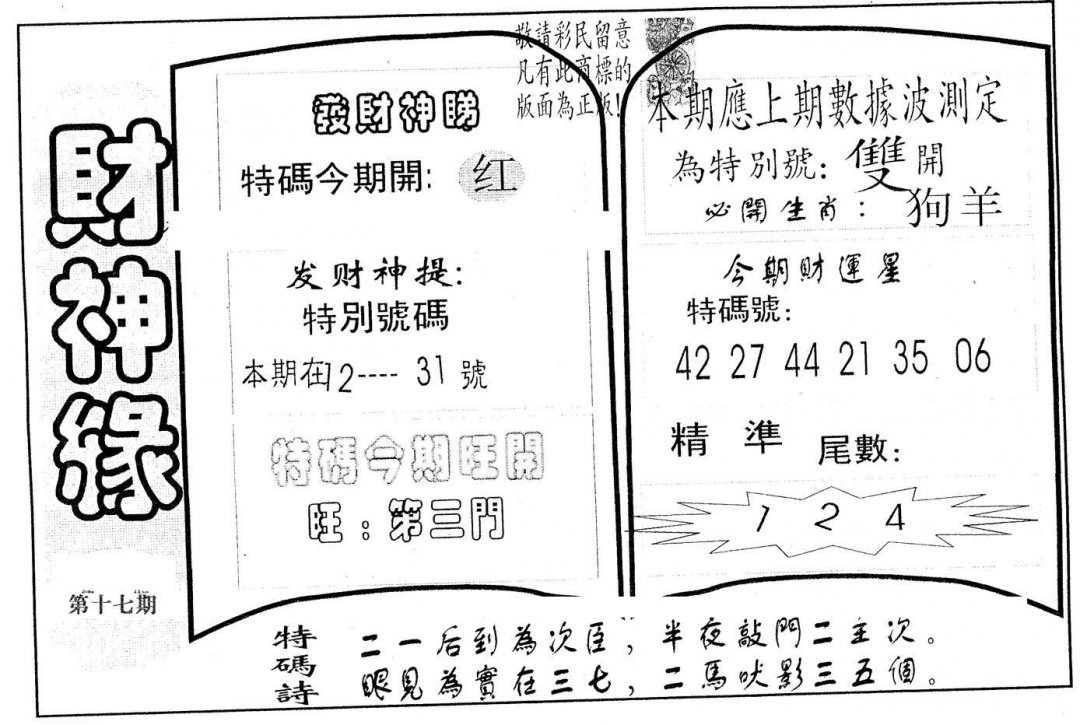 財神緣
第十七期
敬請彩民留意
凡有此商標的
版面為正版!
發財神聯
特碼今期開: 红
发财神提:
特別號碼
本期在12---- 31 號
特碼今期旺開
旺:第三門
本期應上期數據波測定
為特別號: 雙開
必開生肖: 狗羊
今期財運星
特碼號:
42 27 44 21 35 06
精 準 尾數:
1 2 4
特碼詩
二一后到為次臣, 半夜敲門二主次。
眼見為實在三七, 二馬吠影三五個。